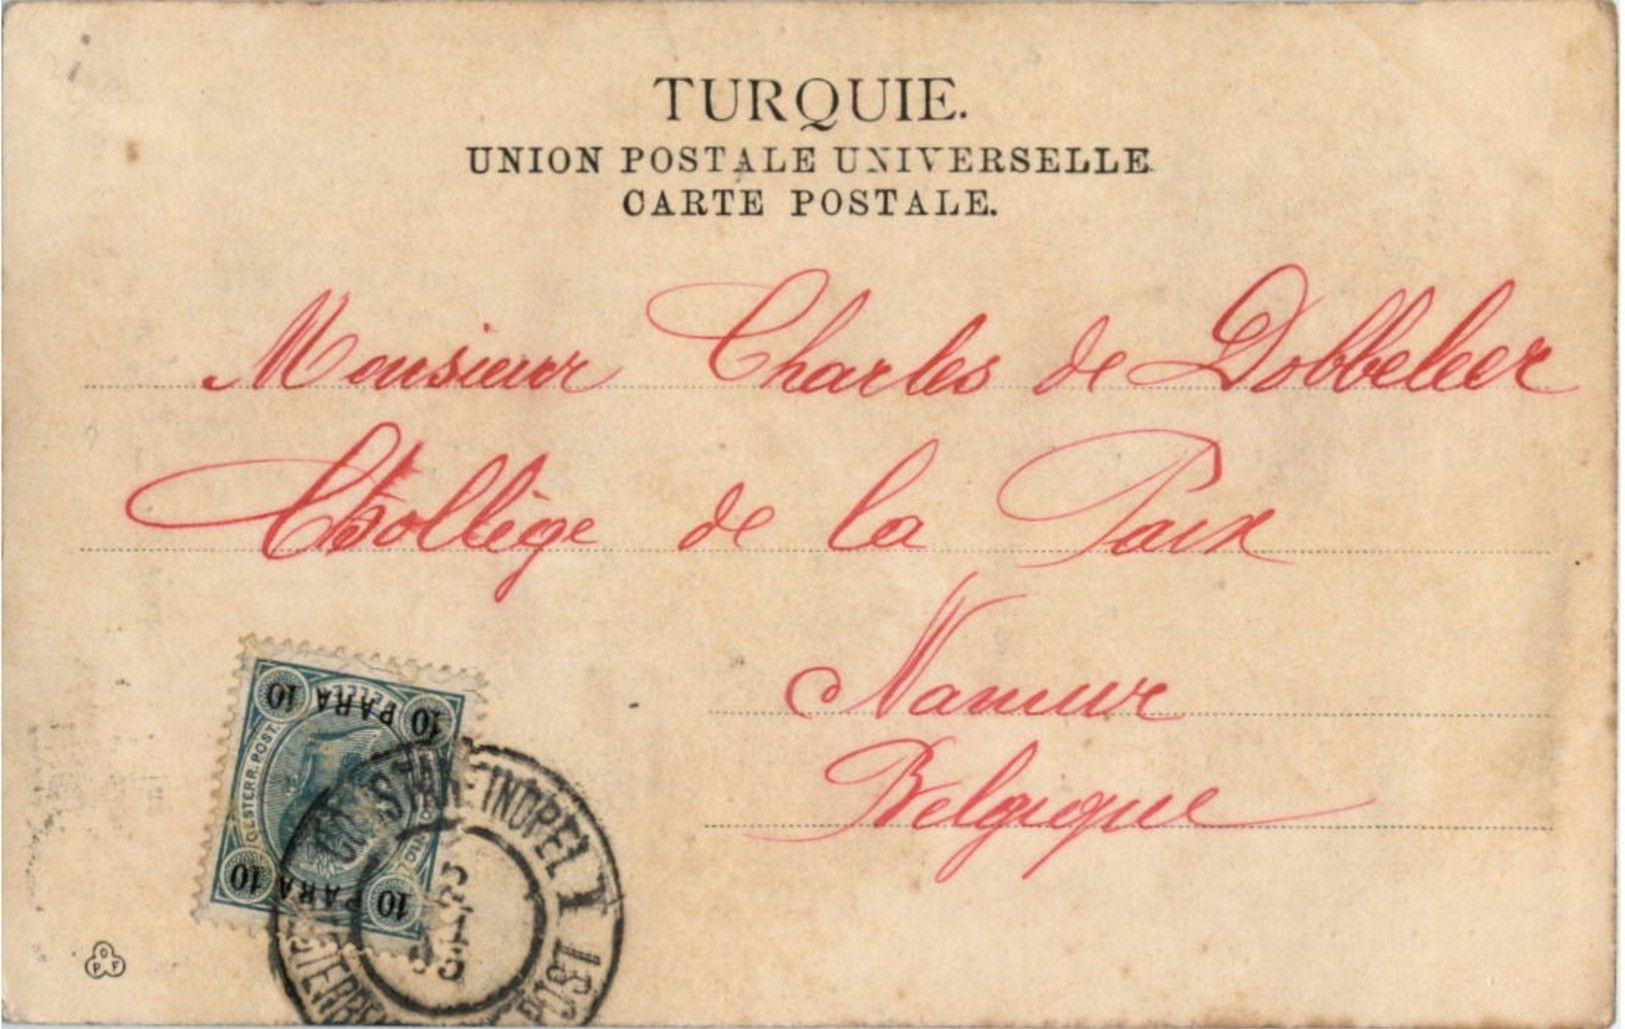 TURQUIE.
UNION POSTALE UNIVERSELLE
CARTE POSTALE.
Monsieur Charles de Dobbeleer
Collège de la Paix
Namur
Belgique
10 PARA 10
OESTERR. POST
10 PARA 10
CONSTANTINOPEL I